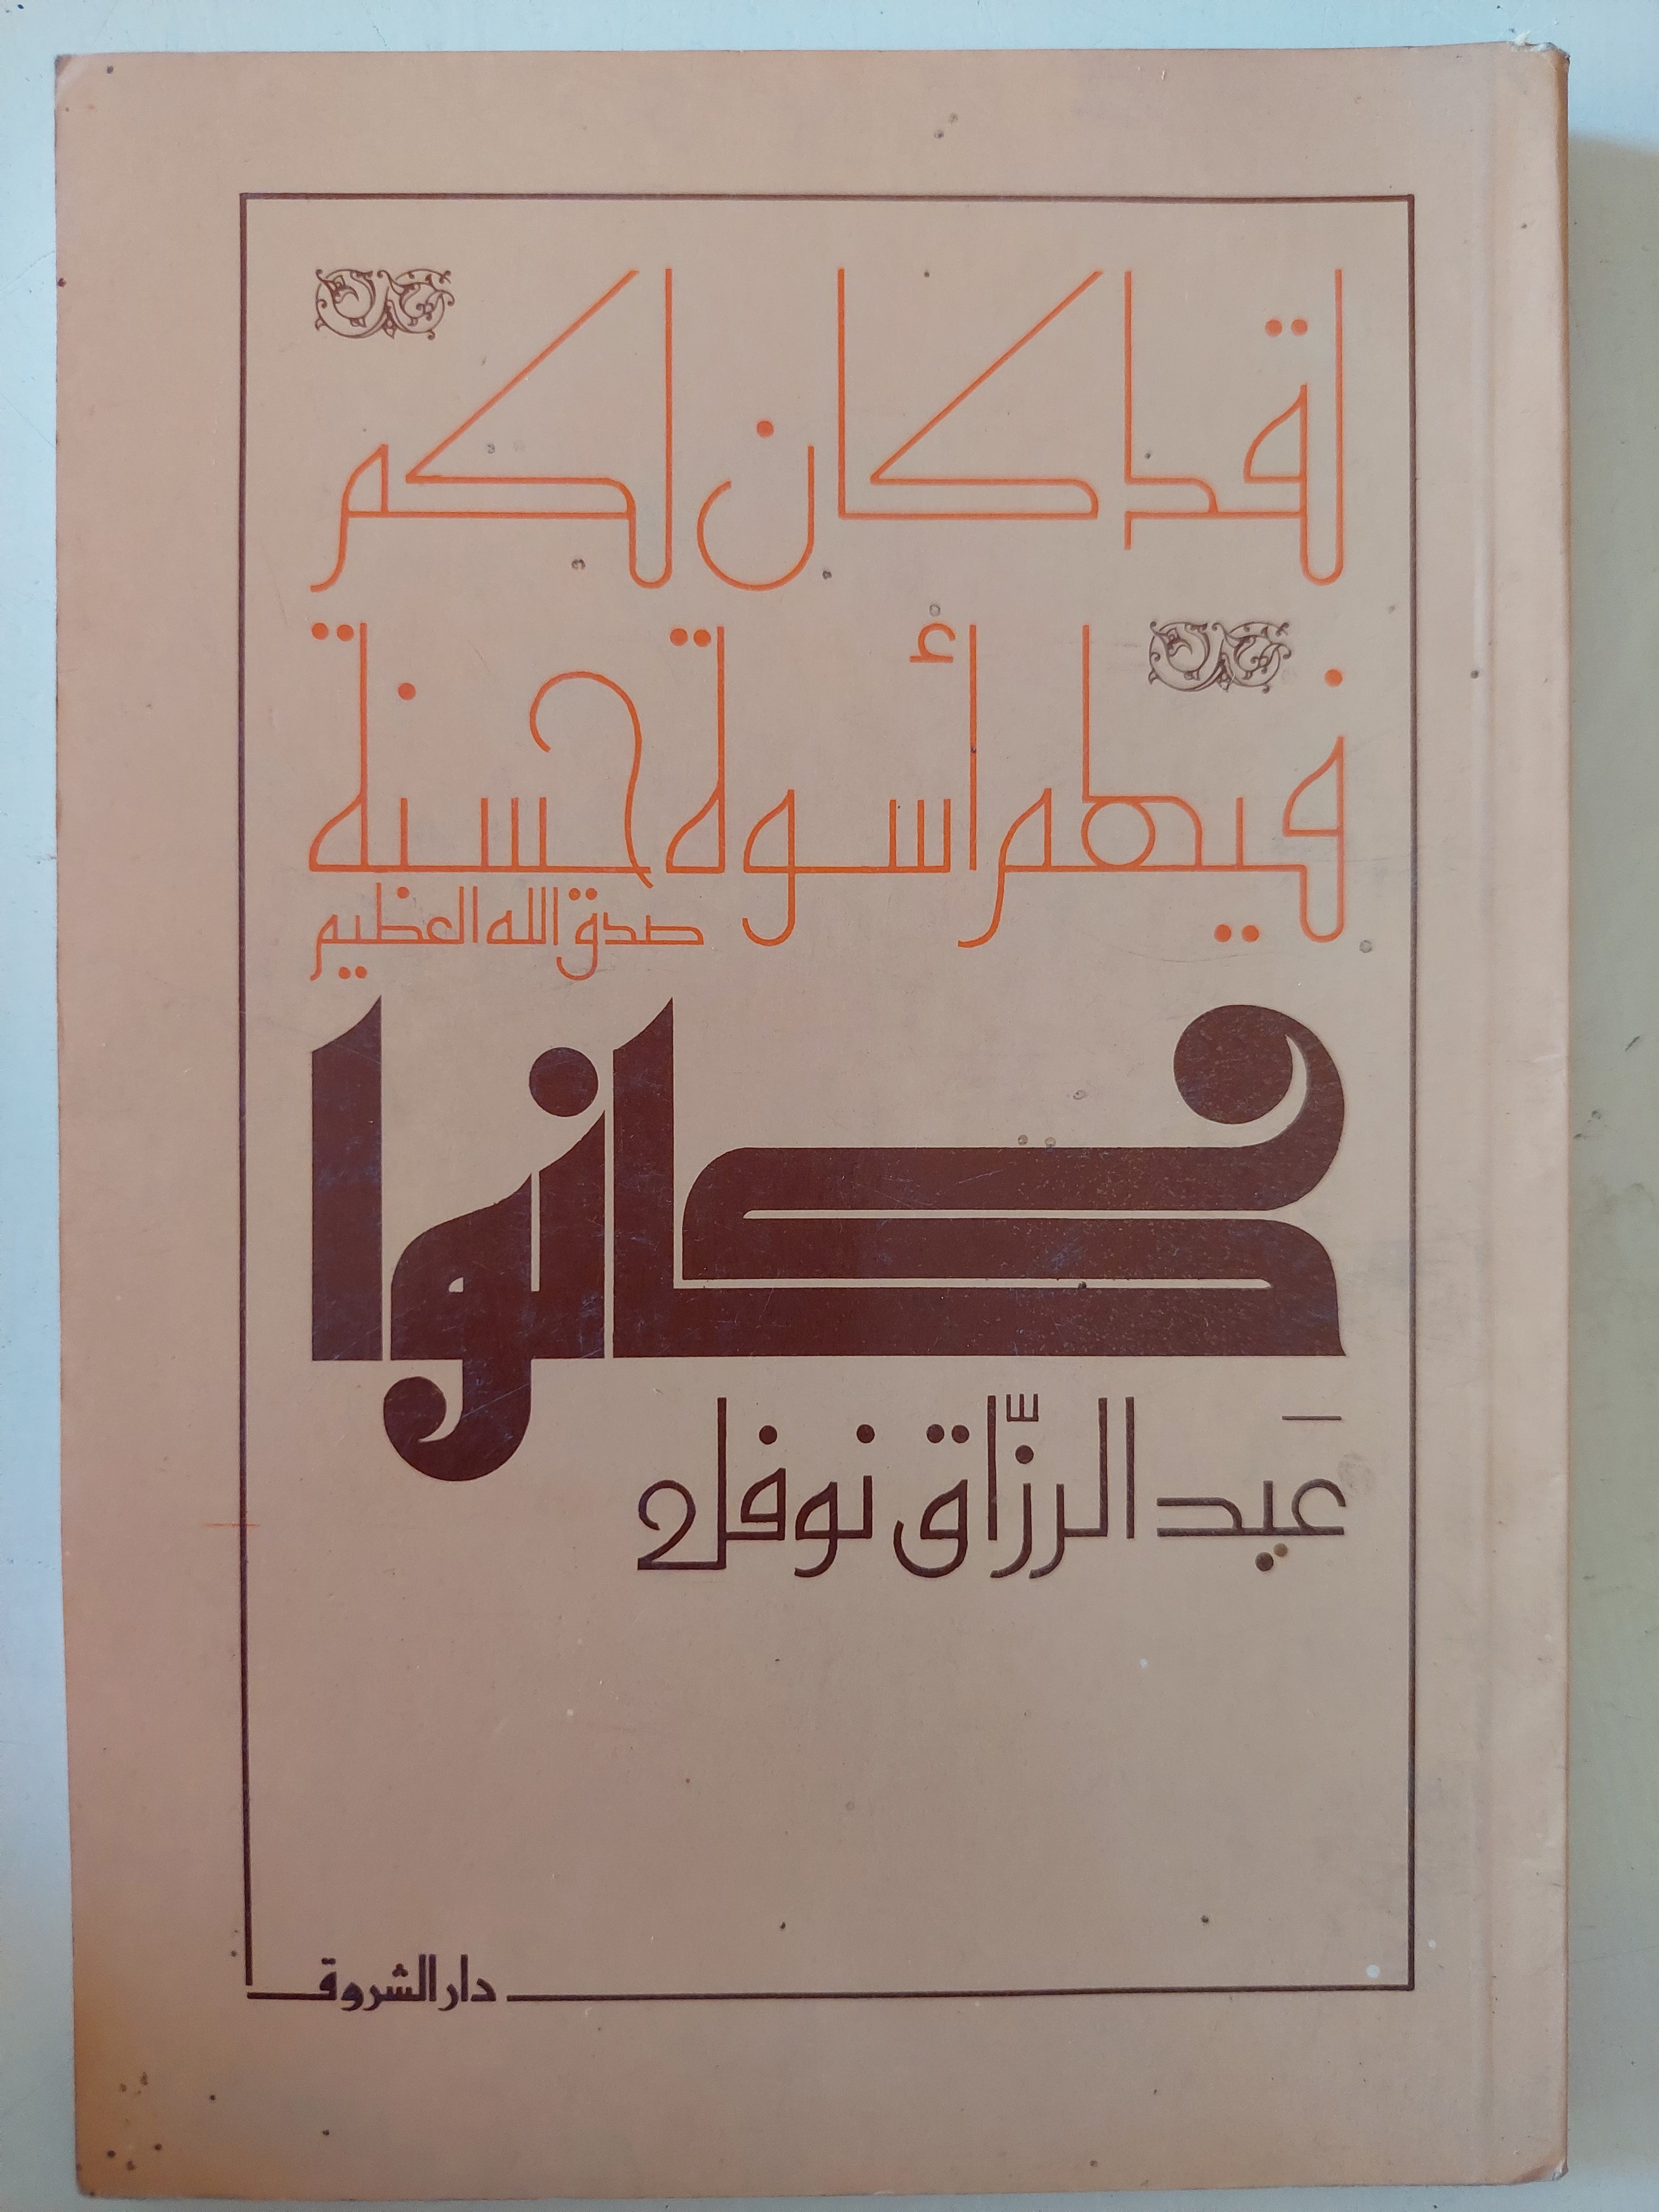 لقد كان لكم
فيهم أسوة حسنة
صدق الله العظيم
كانوا
عبد الرزّاق نوفل
دار الشروق